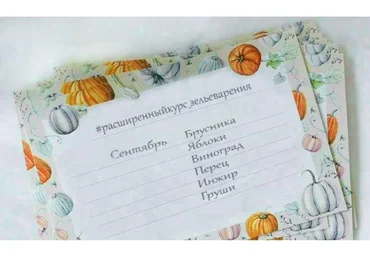 #расширенныйкурс_зельеварения
Сентябрь Брусника
Яблоки
Виноград
Перец
Инжир
Груши